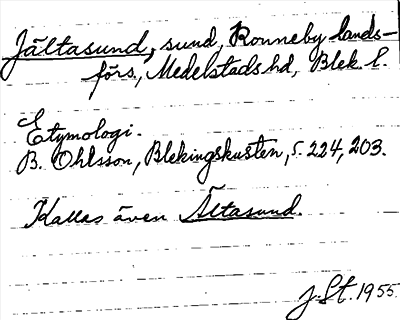 Jältasund, sund, Ronneby lands-
förs., Medelstads hd, Blek. l.
Etymologi.
B. Ohlsson, Blekingskusten, s. 224, 203.
Kallas även Ältasund.
J. St. 1955